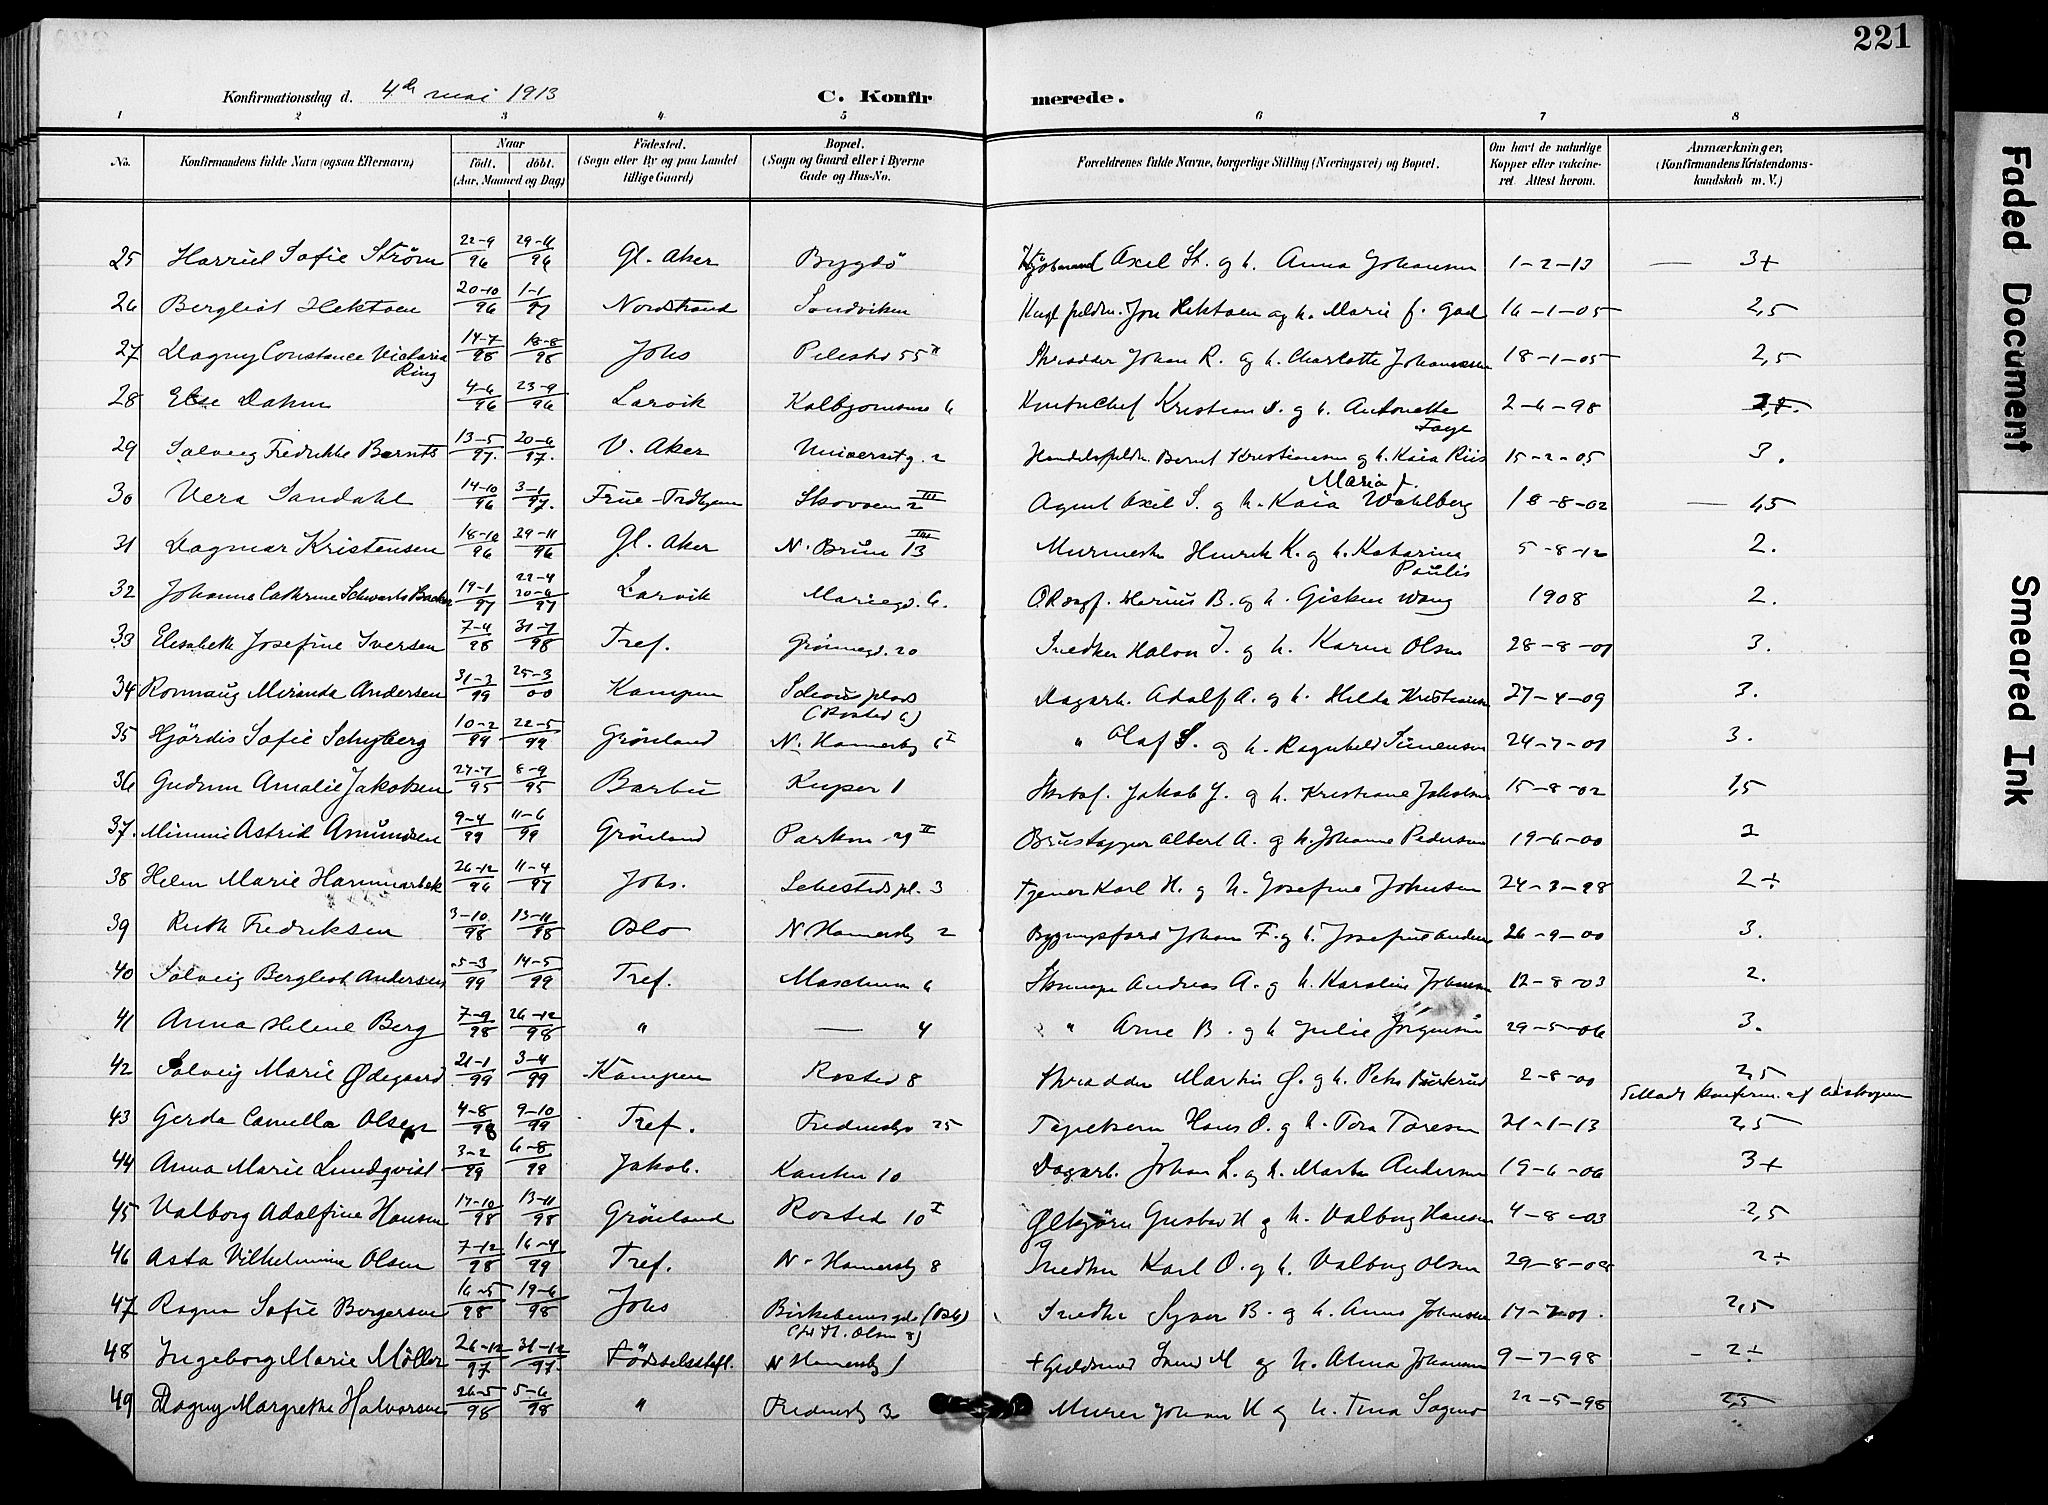 221
Konfirmationsdag d. 4de mai 1913 C. Konfir merede.
1 2 3 4 5 6 7 8
No. Konfirmandens fulde Navn (ogsaa Efternavn) Naar födt. döbt. (Aar, Maaned og Dag) Födested. (Sogn eller By og paa Landet tillige Gaard) Bopæl. (Sogn og Gaard eller i Byerne Gade og Hus-No. Forældrenes fulde Navne, borgerlige Stilling (Næringsvei) og Bopæl. Om havt de naturlige Kopper eller vakcineret. Attest herom. Anmærkninger, (Konfirmandens Kristendomskundskab m. V.)
25 Harriet Sofie Strøm 22-9/96 29-11/96 Gl. Aker Bygdö Axel St. og h. Anna Johansen 1-2-13 — 3+
26 Bergliot Hektoen 20-10/96 1-1/97 Nordstrand Sandviken Jon Hektoen og h. Marie f. Gad 16-1-05 2,5
27 Dagny Constance Victoria Ring 14-7/98 18-8/98 Johs Pilestræ 55 II Skrædder Johan R. og h. Charlotte Johannesen 18-1-05 2,5
28 Else Dahm 4-6/96 23-9/96 Larvik 6 Kristian D. og h. Antonette Faye 2-6-98
29 Solveig Fredrikke Bernts 13-5/97. 20-6/97. V. Aker Universitg. 2 Bernt Kristiansen og h. Kaia Riis 15-2-05 3.
30 Vera Sandahl 14-10/96 3-1/97. Frue-Trdhjem Skovveien 2 III Agent Axel S. og h. Kaia Maria f. Wahlberg 18-8-02 — 1,5
31 Dagmar Kristensen 18-10/96 29-11/96 Gl. Aker N. Brun 13 III Murmester Henrik K. og h. Katarina Paulis 5-8-12 2.
32 Johanne Cathrine Schwartz Backer 19-1/97 22-4 20-6/97 Larvik Mariegd. 6. Marius B. og h. Gisken Wang 1908 2.
33 Elisabeth Josefine Iversen 7-4/98 31-7/98 Tref. Grönnegd. 20 Snedker Halvor I. og h. Karen Olsen 28-8-01 3.
34 Ronnaug Miranda Andersen 31-3/99 25-3/00 Kampen Schous plads (Rosted 6) Dagarb. Adolf A. og h. Hilda Kristiansen 27-4-09 3.
35 Hjördis Sofie Schyberg 10-2/99 22-5/99 Grönland N. Hammersbg 6 I " Olaf S. og h. Ragnhild Simensen 24-7-01 3.
36 Gudrun Amalie Jakobsen 27-7/95 8-9/95 Barbu Keyser 1 Jakob J. og h. Kristiane Jakobsen 15-8-02 1,5
37. Mimmi Astrid Amundsen 9-4/99 11-6/99 Grönland Parkvn. 29 II Brustapper Albert A. og h. Johanne Pedersen 19-6-00 2
38 Helen Marie Hammarbek 26-12/96 11-4/97 Johs. Sehesteds pl. 3 Tjener Karl H. og h. Josefine Johnsen 24-3-98 2+
39 Ruth Fredriksen 3-10/98 13-11/98 Oslo N Hammersbg 2 Johan F. og h. Josefine Anders 26-9-00 3.
40 Solveig Bergliot Andersen 5-3/99 14-5/99 Tref. Maschum 6 Andreas A. og h. Karoline Johansen 12-8-03 2.
41 Anna Helene Berg 7-9/98 26-12/98 " — 4 " Arne B. og h Julie Jörgensen 29-5-06 3.
42 Solveig Marie Ødegaard 21-1/99 3-4/99 Kampen Rosted 8 Skrædder Martin Ø. og h. Petra 2-8-00 2,5
43 Gerda Camella Olsen 4-8/98 9-10/99 Tref. Fredensbg 25 Tapetserer Hans O. og h. Tora Toresen 21-1-13 Tilladt konfirm. af biskopen 2,5
44 Anna Marie Lundqvist 3-2/99 6-8/99 Jakob. 10 Dagarb. Johan L. og h. Marta Andersen 19-6-06 3+
45 Valborg Adolfine Hansen 17-10/98 13-11/98 Grönland Rosted 10 I Ølkjörer Gustav H og h. Valborg Hansen 4-8-03 2,5
46 Asta Vilhelmine Olsen 7-12/98 16-4/99 Tref. N. Hammersbg 8 Snedker Karl O. og h. Valborg Olsen 29-8-08 2+
47 Ragna Sofie Bergersen 16-5/98 19-6/98 Johs Birkebeinergd. (Oslo) Olsen 8) Snedker Syver B. og h. Anna Johansen 17-7-01. 2,5
48 Ingeborg Marie Möller 26-12/97 31-12/97 Födselsstift. N Hammersbg 1 + Guldsmed M og h. Alma Johansen 9-7-98 - 2+
49 Dagny Margrethe Halvorsen 26-5/98 5-6/98 " Fredensbg 3 Murer Johan H og h. Tina Sagmo 22-5-98 2,5
Faded Document
Smeared Ink